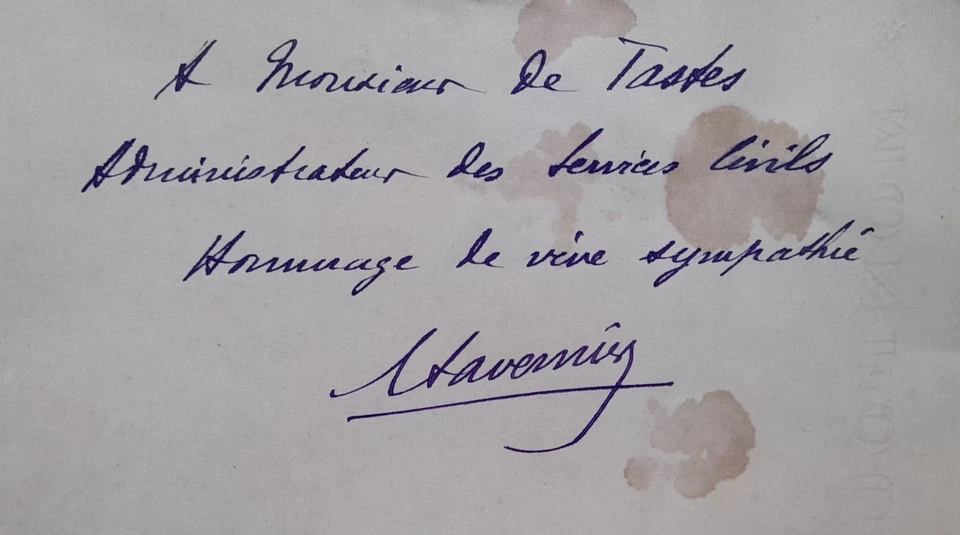 A Monsieur de Tastes
Administrateur des Services Civils
Hommage de vive sympathie
Tavernier